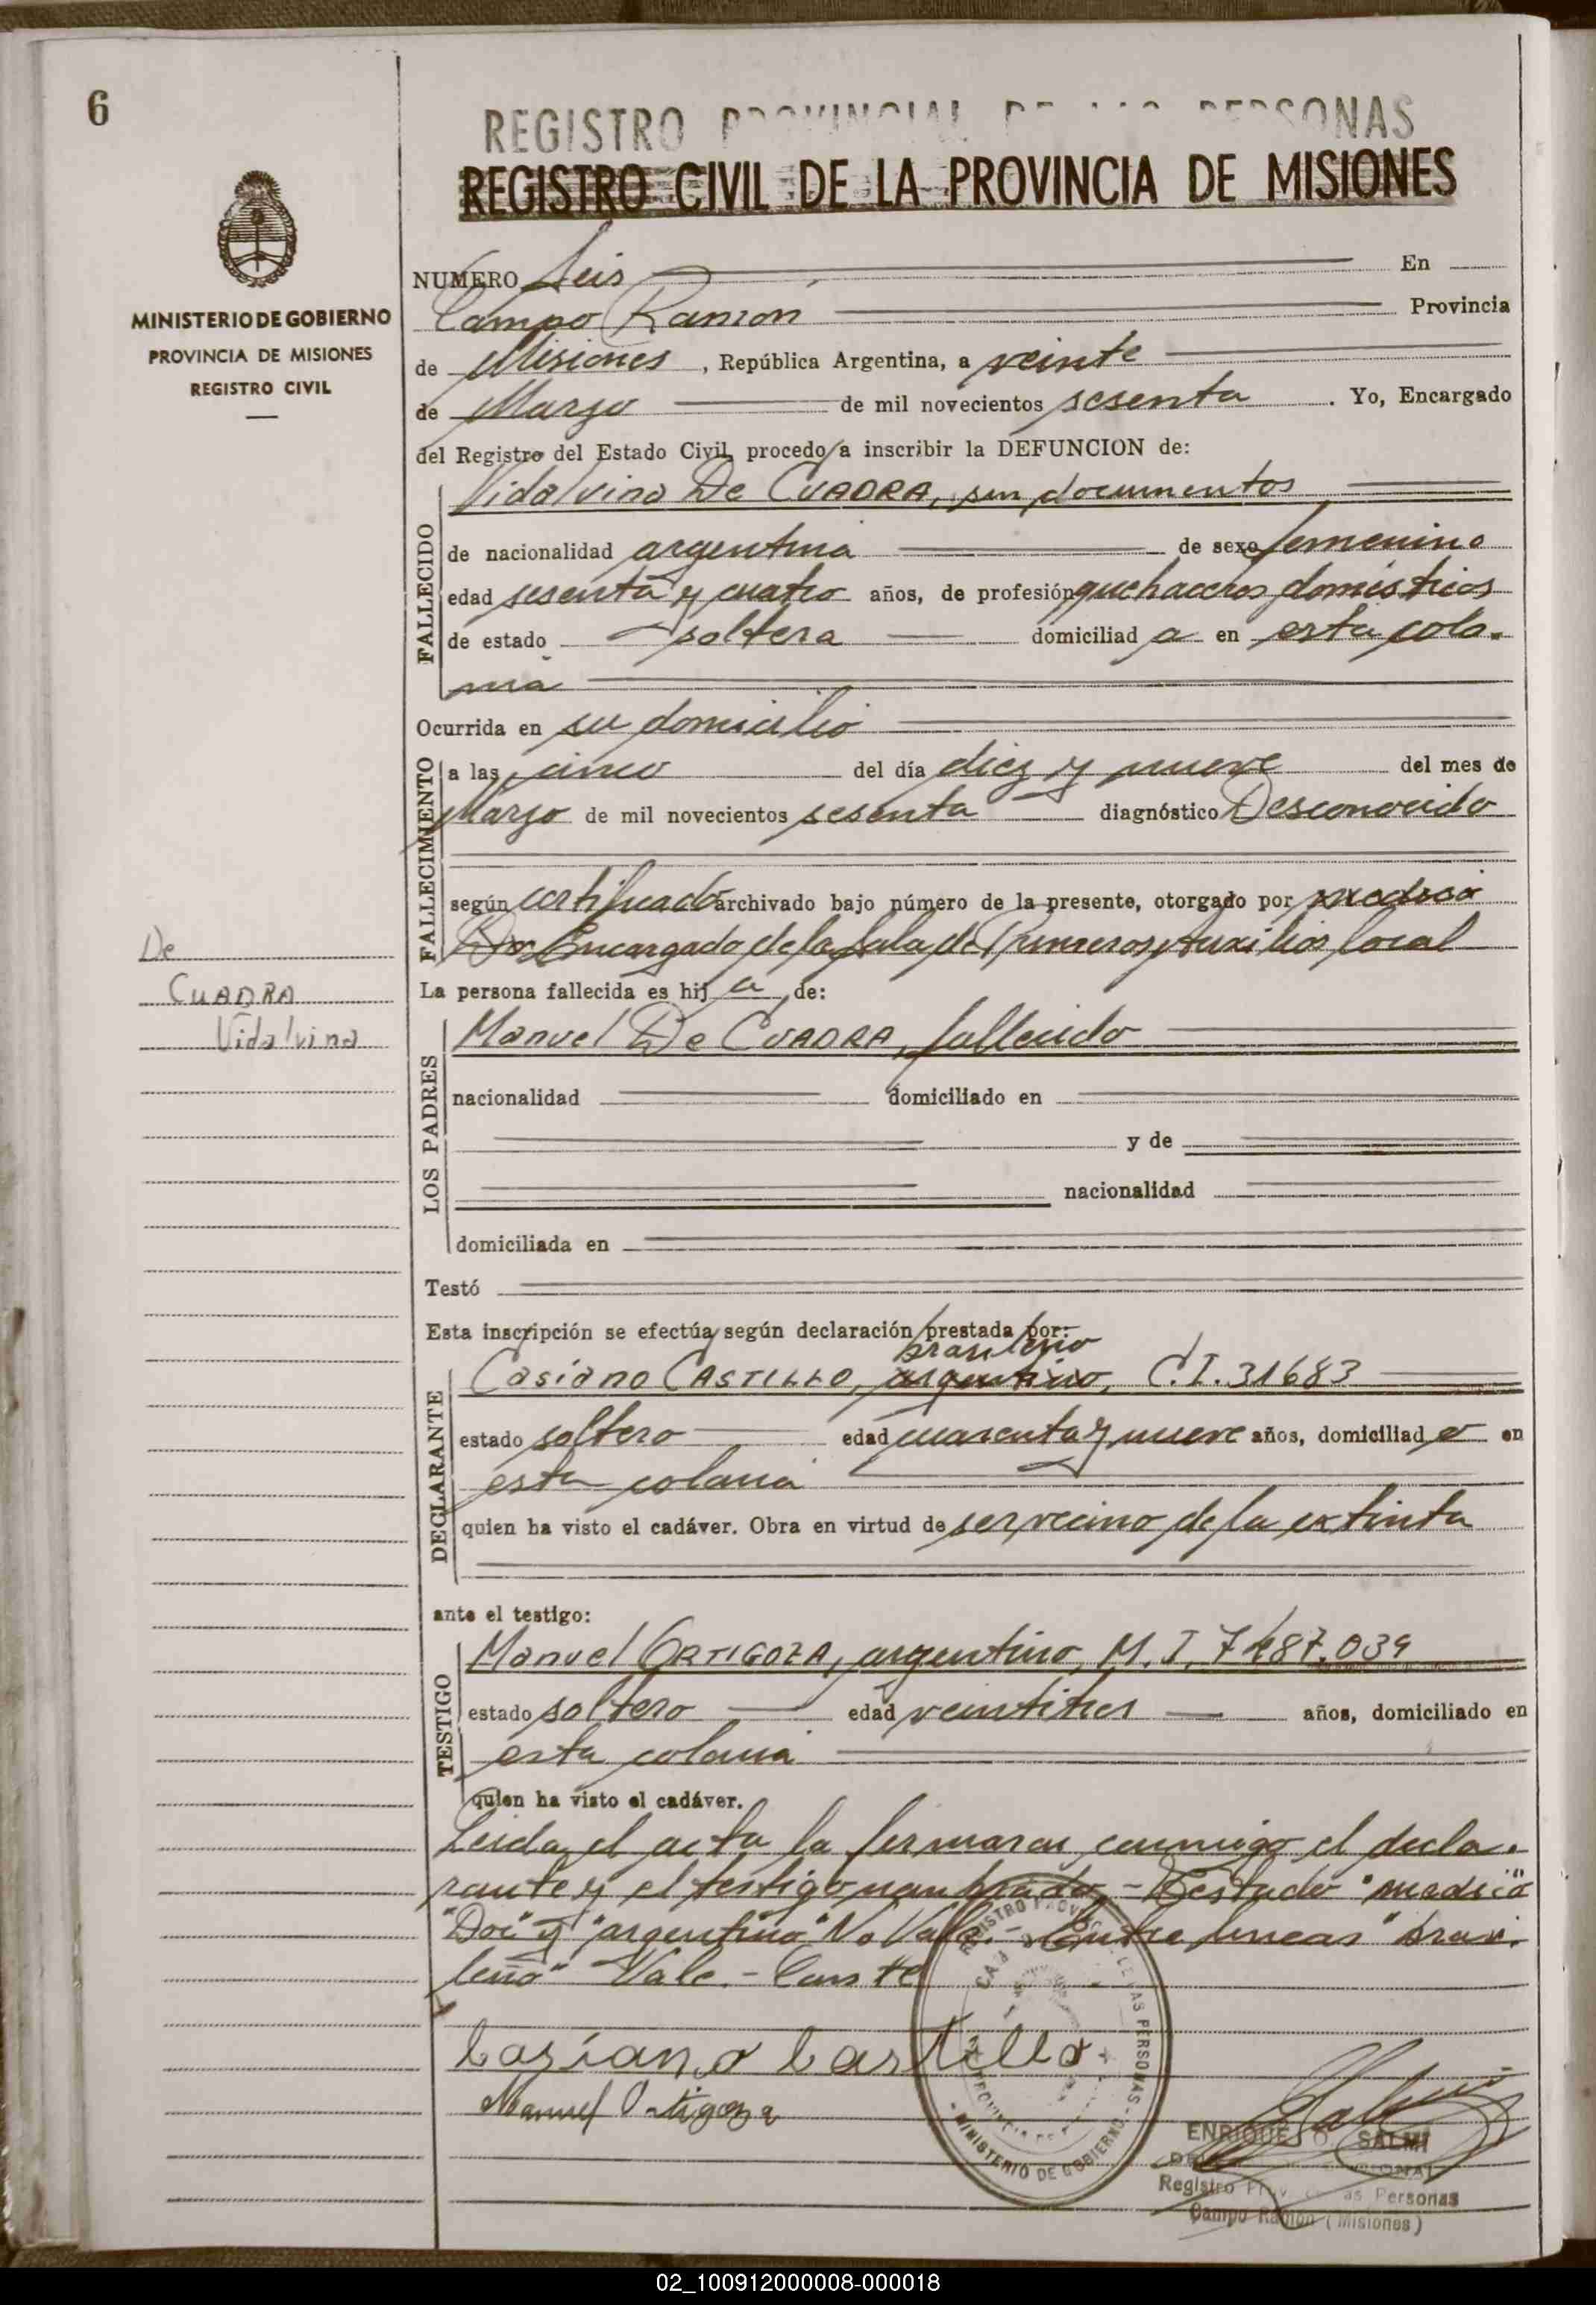 6
REGISTRO PROVINCIAL DE LAS PERSONAS
REGISTRO CIVIL DE LA PROVINCIA DE MISIONES
MINISTERIO DE GOBIERNO
PROVINCIA DE MISIONES
REGISTRO CIVIL
NUMERO Seis En
Campo Ramón Provincia
de Misiones, República Argentina, a veinte
de Marzo de mil novecientos sesenta. Yo, Encargado
del Registro del Estado Civil, procedo a inscribir la DEFUNCION de:
FALLECIDO
Vidalvina De CUADRA, sin documentos
de nacionalidad argentina de sexo femenino
edad sesenta y cuatro años, de profesión quehaceres domésticos
de estado soltera domiciliad a en esta colo-
nia
Ocurrida en su domicilio
FALLECIMIENTO
a las cinco del día diez y nueve del mes de
Marzo de mil novecientos sesenta diagnóstico Desconocido
según certificado archivado bajo número de la presente, otorgado por medico
Dor Encargado de la Sala de Primeros Auxilios local
De
CUADRA
Vidalvina
La persona fallecida es hij a de:
LOS PADRES
Manuel De CUADRA, fallecido
nacionalidad domiciliado en
y de
nacionalidad
domiciliada en
Testó
Esta inscripción se efectúa según declaración prestada por:
brasileño
DECLARANTE
Casiano CASTILLO, argentino, C.I. 31683
estado soltero edad cuarenta y nueve años, domiciliad o en
esta colonia
quien ha visto el cadáver. Obra en virtud de ser vecino de la extinta
ante el testigo:
TESTIGO
Manuel ORTIGOZA, argentino, M.I. 7.487.039
estado soltero edad veintitres años, domiciliado en
esta colonia
quien ha visto el cadáver.
Leida el acta la firmaron conmigo el decla-
rante y el testigo nombrado.- Testado "medico"
"Dor" y "argentino" No Vale.- Entre lineas "brasi-
leño" Vale.- Conste
Casiano Castillo
Manuel Ortigoza
REGISTRO PROVINCIAL DE LAS PERSONAS
MINISTERIO DE GOBIERNO
ENRIQUE O. SALMI
Registro Prov. de las Personas
Campo Ramón (Misiones)
02_100912000008-000018